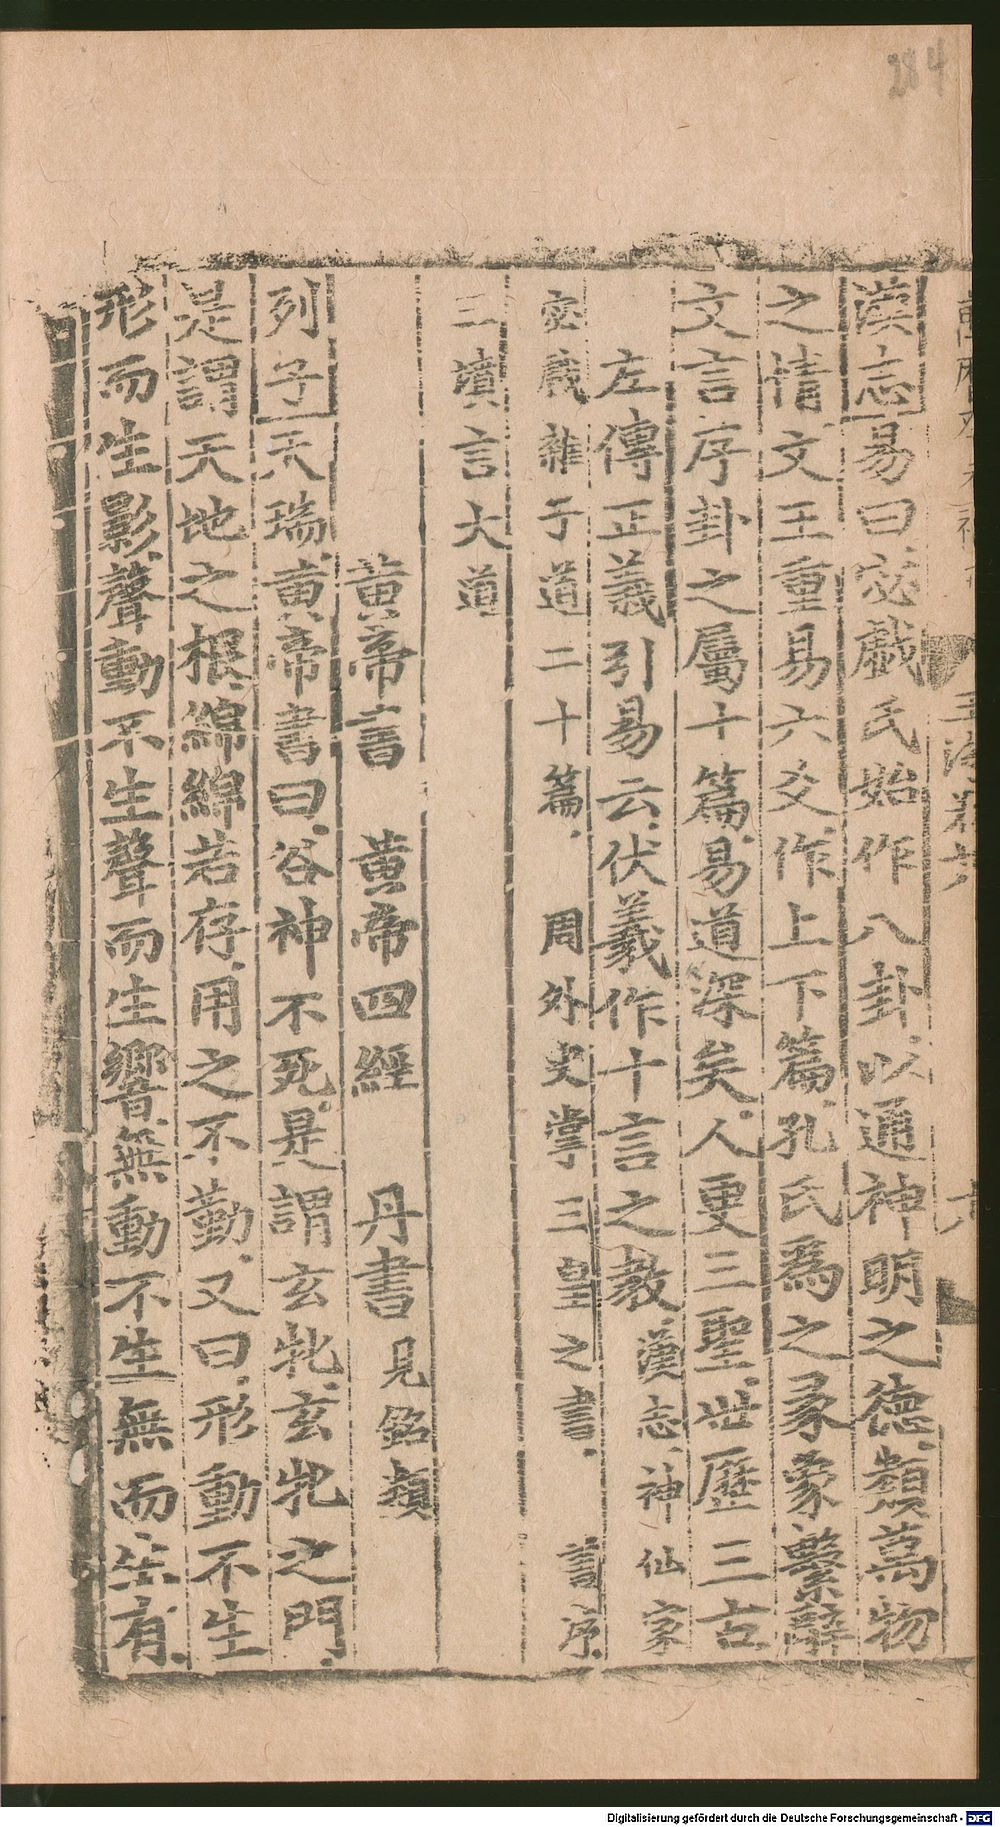 284
玉海卷
六
漢志易曰宓戲氏始作八卦以通神明之德類萬物
之情文王重易六爻作上下篇孔氏爲之彖象繫辭
文言序卦之屬十篇易道深矣人更三聖世歷三古
左傳正義引易云伏羲作十言之教漢志神仙家
宓戲雜子道二十篇 周外史掌三皇之書 書序
三墳言大道
黃帝書 黃帝四經 丹書見銘類
列子天瑞黃帝書曰谷神不死是謂玄牝玄牝之門
是謂天地之根綿綿若存用之不勤又曰形動不生
形而生影聲動不生聲而生響無動不生無而生有
Digitalisierung gefördert durch die Deutsche Forschungsgemeinschaft - DFG